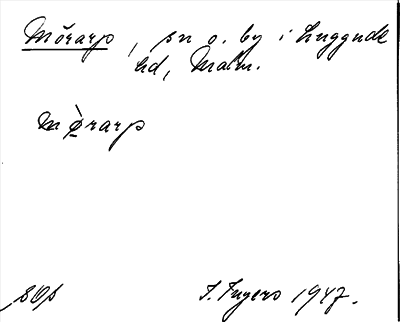 Mörarp, sn o. by i Luggude
hd, Malm.
Mø̀rarp
SOf I. Ingers 1947.